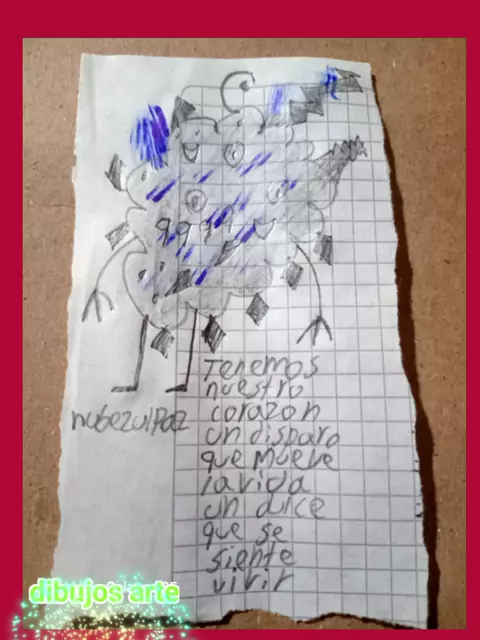 Tenemos
nuestro
corazon
un disparo
que mueve
la vida
un dulce
que se
siente
vivir
dibujos arte